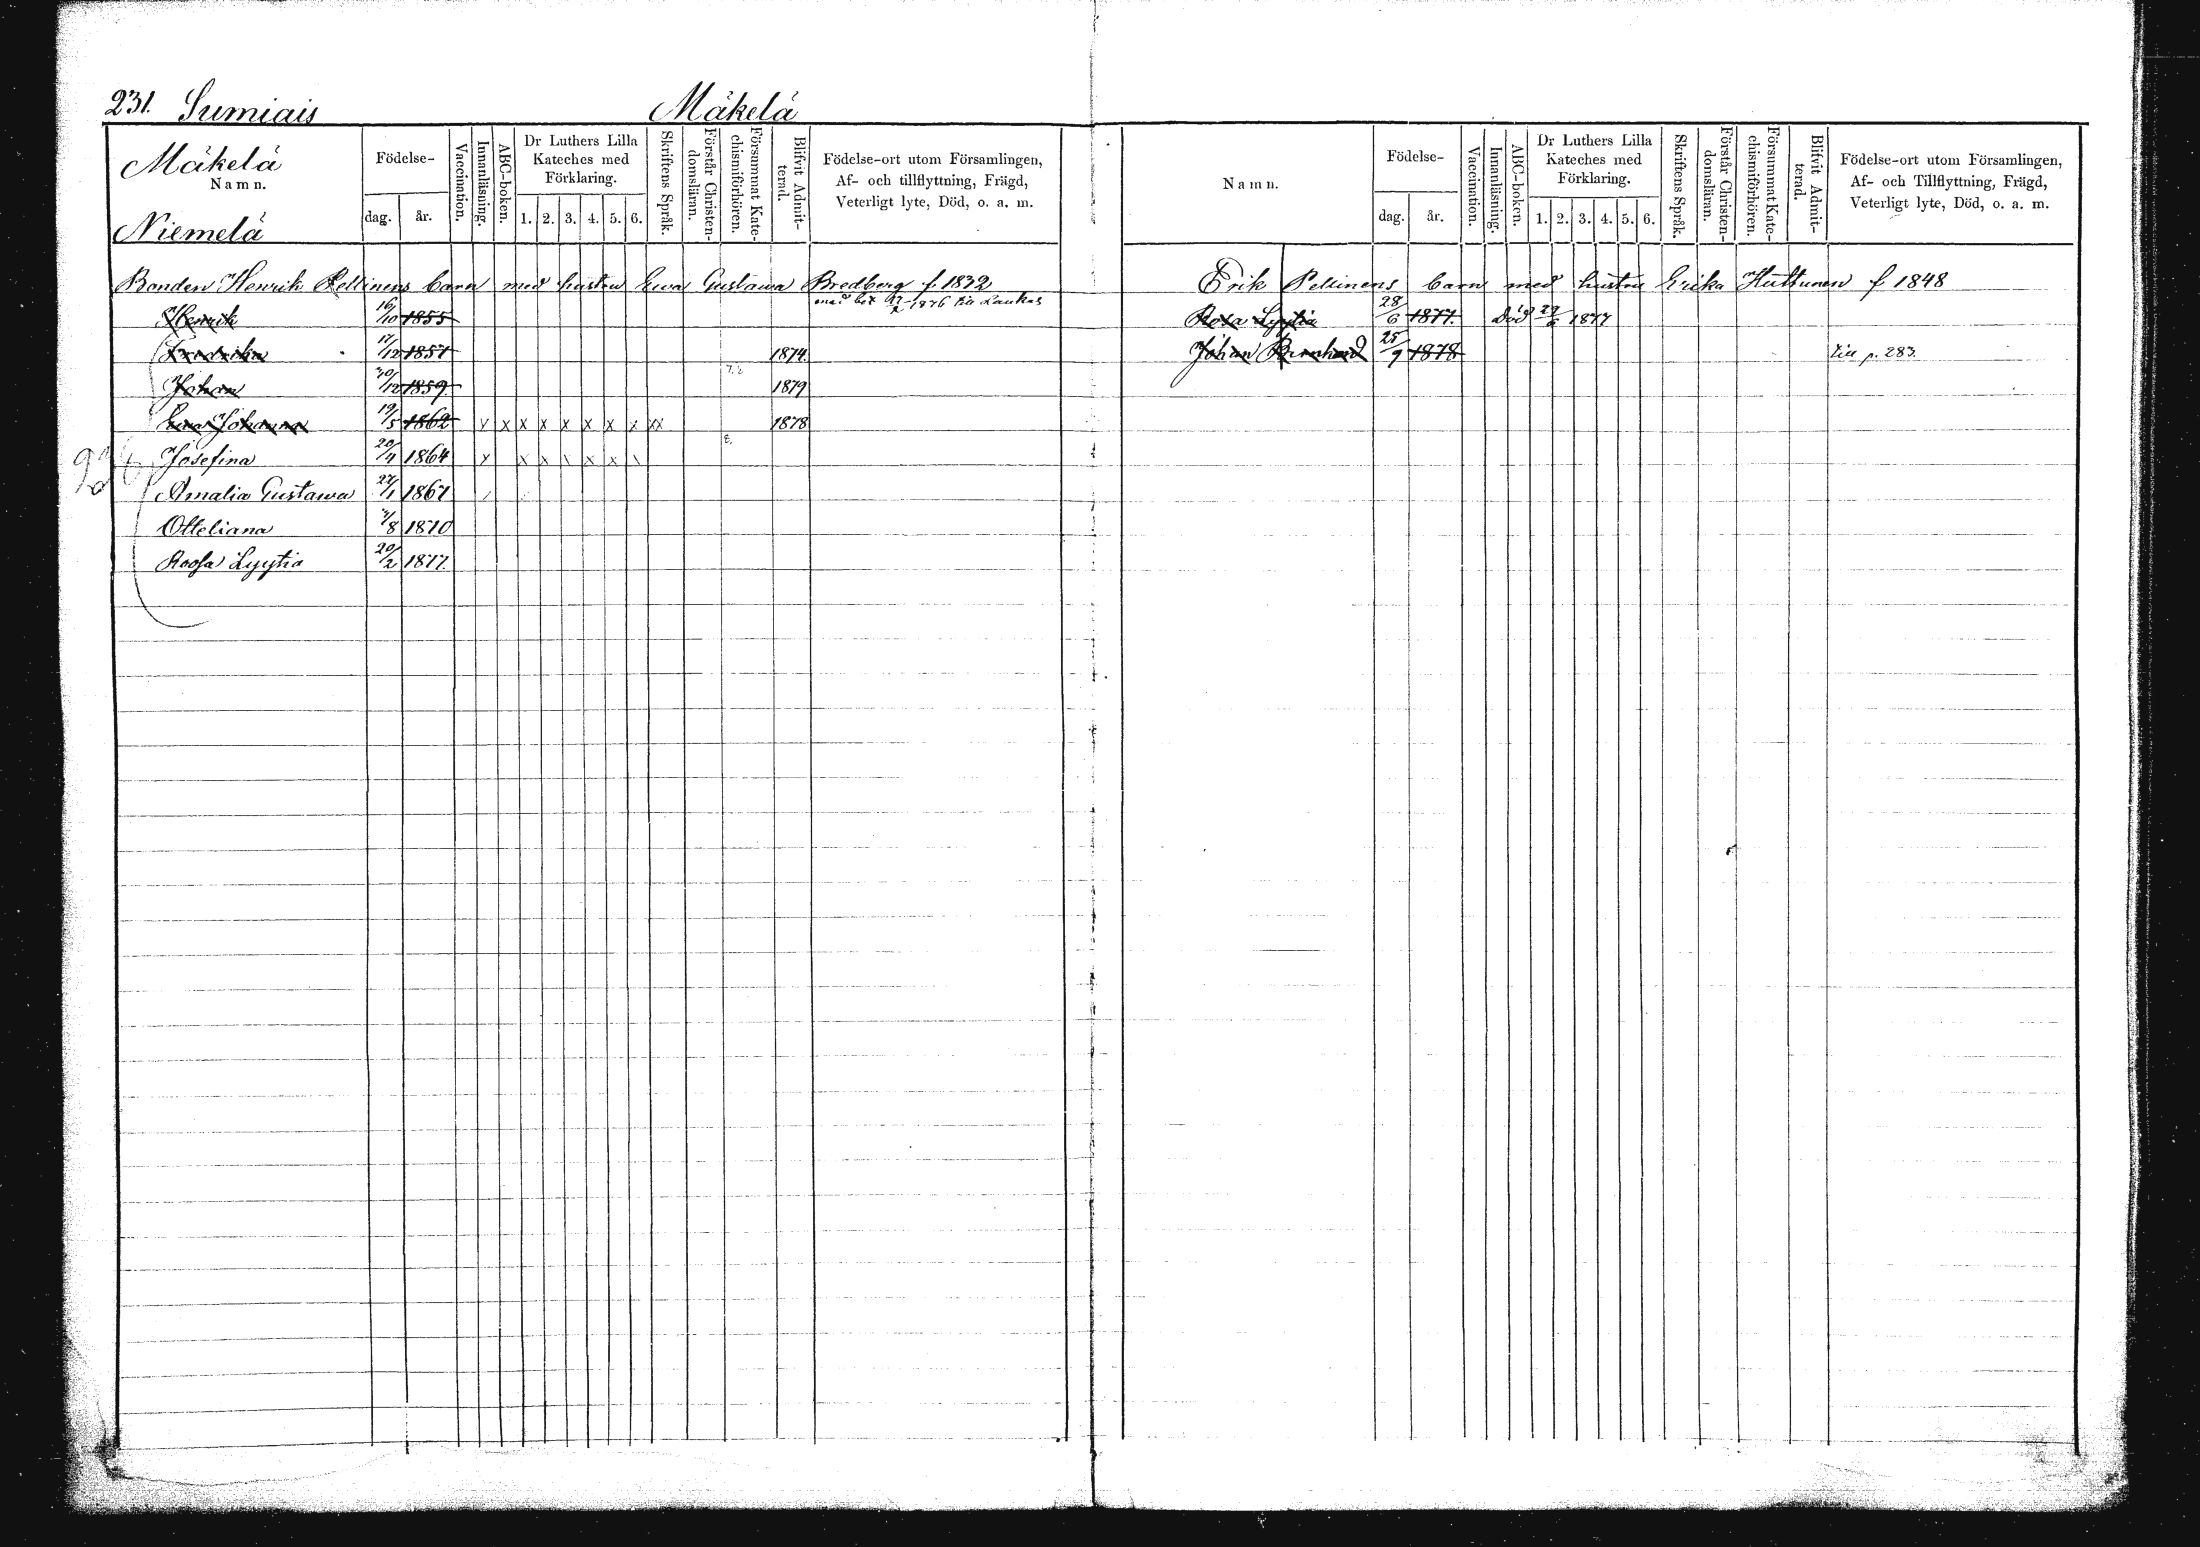 231. Sumiais Mäkelä
Mäkelä
Namn.
Niemelä
Födelse-
dag. år.
Vaccination.
Innanläsning.
ABC-boken.
Dr Luthers Lilla
Kateches med
Förklaring.
1. 2. 3. 4. 5. 6.
Skriftens Språk.
Förstår Christen-
domsläran.
Försummat Kate-
chismiförhören.
Blifvit Admit-
terad.
Födelse-ort utom Församlingen,
Af- och tillflyttning, Frägd,
Veterligt lyte, Död, o. a. m.
Bonden Henrik Pellinens barn med hustru Ewa Gustawa Bredberg f. 1832
Henrik 16/10 1855 med bet 1876 till Laukas
Fredrika 17/12 1857 1874.
Johan 30/12 1859. 1879
Ewa Johanna 19/5 1862 x x x x x x x x xx 1878
Josefina 20/4 1864 x x x \ x x \
Amalia Gustawa 27/1 1867
Otteliana 7/8 1870
Roosa Lyytia 20/2 1877.
Namn.
Födelse-
dag. år.
Vaccination.
Innanläsning.
ABC-boken.
Dr Luthers Lilla
Kateches med
Förklaring.
1. 2. 3. 4. 5. 6.
Skriftens Språk.
Förstår Christen-
domsläran.
Försummat Kate-
chismiförhören.
Blifvit Admit-
terad.
Födelse-ort utom Församlingen,
Af- och Tillflyttning, Frägd,
Veterligt lyte, Död, o. a. m.
Erik Pellinens barn med hustru Erika Huttunen f 1848
Rosa Lyytia 28/6 1877. Död 29/6 1877
Johan Bernhard 25/9 1878 till p. 283.